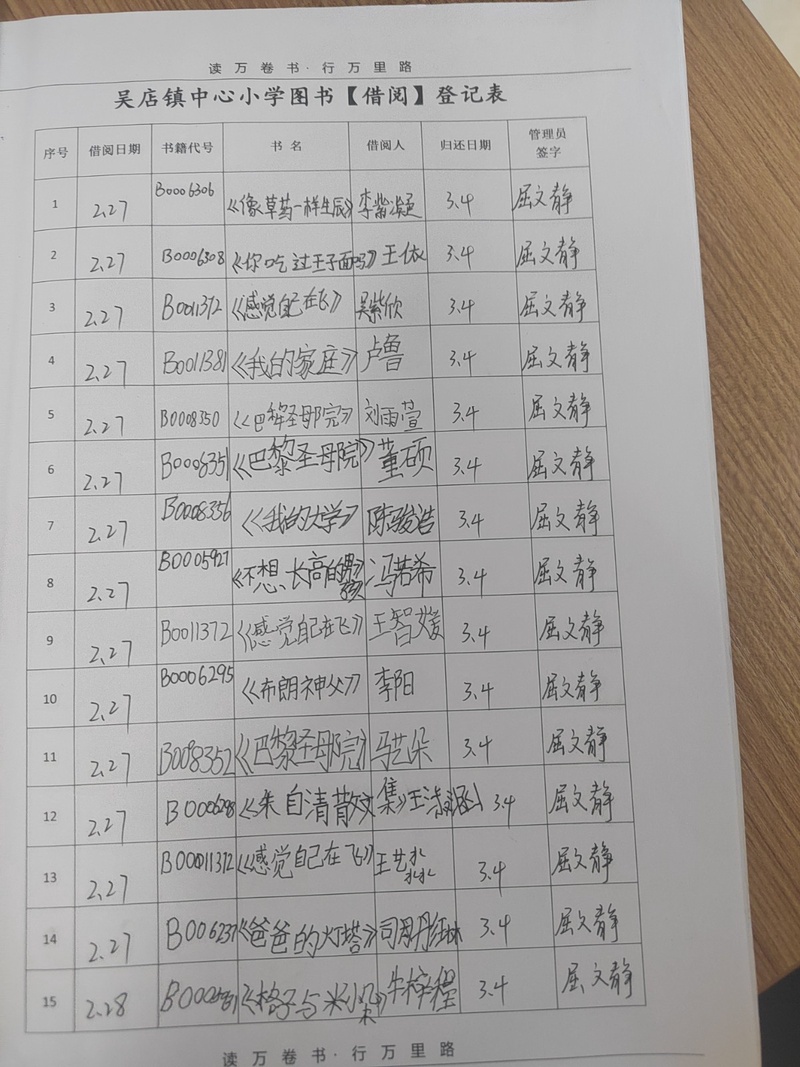 读万卷书·行万里路
吴店镇中心小学图书【借阅】登记表
序号 借阅日期 书籍代号 书 名 借阅人 归还日期 管理员签字
1 2.27 B0006306 《像草药一样生辰》 李紫凝 3.4 屈文静
2 2.27 B0006308 《你吃过王子面吗》 王依 3.4 屈文静
3 2.27 B0011372 《感觉自己在飞》 吴紫欣 3.4 屈文静
4 2.27 B0011381 《我的家庭》 卢鲁 3.4 屈文静
5 2.27 B0008350 《巴黎圣母院》 刘雨萱 3.4 屈文静
6 2.27 B0008351 《巴黎圣母院》 董硕 3.4 屈文静
7 2.27 B0008356 《我的大学》 陈骏浩 3.4 屈文静
8 2.27 B0005927 《不想长高的男孩》 冯若希 3.4 屈文静
9 2.27 B0011372 《感觉自己在飞》 王智媛 3.4 屈文静
10 2.27 B0006295 《布朗神父》 李阳 3.4 屈文静
11 2.27 B0008352 《巴黎圣母院》 马艺朵 3.4 屈文静
12 2.27 B0006298 《朱自清散文集》 王 3.4 屈文静
13 2.27 B00011372 《感觉自己在飞》 王艺淼 3.4 屈文静
14 2.27 B006237 《爸爸的灯塔》 司 3.4 屈文静
15 2.28 《格子与米小朵》 牛梓程 3.4 屈文静
读万卷书·行万里路